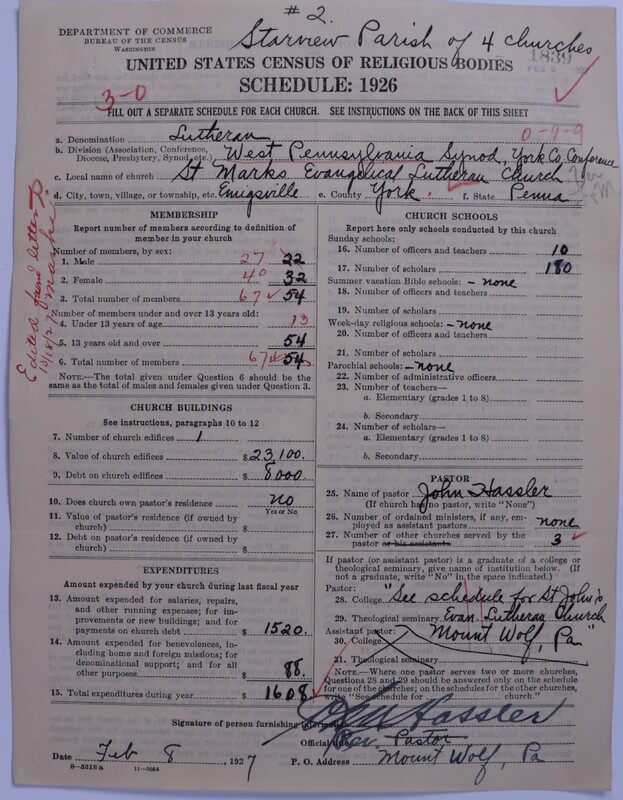 # 2.
DEPARTMENT OF COMMERCE
BUREAU OF THE CENSUS
WASHINGTON
Starview Parish of 4 churches
1839
FEB 9
UNITED STATES CENSUS OF RELIGIOUS BODIES
SCHEDULE: 1926
3-0
FILL OUT A SEPARATE SCHEDULE FOR EACH CHURCH. SEE INSTRUCTIONS ON THE BACK OF THIS SHEET
0-9-9
a. Denomination Lutheran
b. Division (Association, Conference, Diocese, Presbytery, Synod, etc.) West Pennsylvania Synod, York Co. Conference
c. Local name of church St Marks Evangelical Lutheran Church
d. City, town, village, or township, etc. Emigsville e. County York. f. State Penna
Edited from letter
10/18/27
MEMBERSHIP
Report number of members according to definition of
member in your church
Number of members, by sex:
1. Male 27 22
2. Female 40 32
3. Total number of members 67 54
Number of members under and over 13 years old:
4. Under 13 years of age 13
5. 13 years old and over 54
6. Total number of members 67 54
NOTE.—The total given under Question 6 should be the
same as the total of males and females given under Question 3.
CHURCH BUILDINGS
See instructions, paragraphs 10 to 12
7. Number of church edifices 1
8. Value of church edifices $ 23,100.
9. Debt on church edifices $ 8000
10. Does church own pastor's residence no
Yes or No
11. Value of pastor's residence (if owned by
church) $
12. Debt on pastor's residence (if owned by
church) $
EXPENDITURES
Amount expended by your church during last fiscal year
13. Amount expended for salaries, repairs,
and other running expenses; for im-
provements or new buildings; and for
payments on church debt $ 1520.
14. Amount expended for benevolences, in-
cluding home and foreign missions; for
denominational support; and for all
other purposes $ 88.
15. Total expenditures during year $ 1608.
CHURCH SCHOOLS
Report here only schools conducted by this church
Sunday schools:
16. Number of officers and teachers 10
17. Number of scholars 180
Summer vacation Bible schools: - none
18. Number of officers and teachers
19. Number of scholars
Week-day religious schools: - none
20. Number of officers and teachers
21. Number of scholars
Parochial schools: - none
22. Number of administrative officers
23. Number of teachers—
a. Elementary (grades 1 to 8)
b. Secondary
24. Number of scholars—
a. Elementary (grades 1 to 8)
b. Secondary
PASTOR
25. Name of pastor John Hassler
(If church has no pastor, write "None")
26. Number of ordained ministers, if any, em-
ployed as assistant pastors none
27. Number of other churches served by the
pastor or his assistants 3
If pastor (or assistant pastor) is a graduate of a college or
theological seminary, give name of institution below. (If
not a graduate, write "No" in the space indicated.)
Pastor:
28. College "See schedule for St John's
29. Theological seminary Evan. Lutheran Church
Assistant pastor:
30. College Mount Wolf, Pa"
31. Theological seminary
NOTE.—Where one pastor serves two or more churches,
Questions 28 and 29 should be answered only on the schedule
for one of the churches; on the schedules for the other churches,
write "See schedule for church."
Signature of person furnishing information Hassler
Official title Rev. Pastor
Date Feb 8, 1927 P. O. Address Mount Wolf, Pa
8—5518a 11—9064